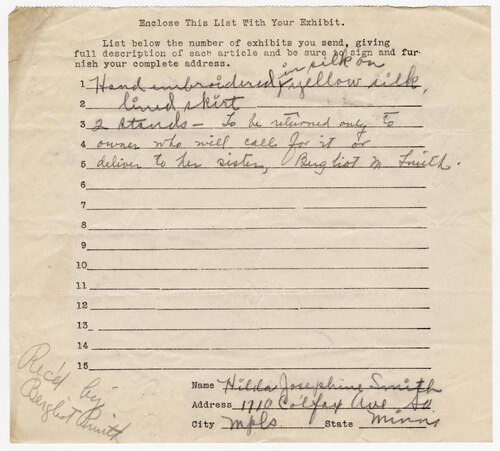 Enclose This List With Your Exhibit.
List below the number of exhibits you send, giving
full description of each article and be sure to sign and fur-
nish your complete address.
in silk on
1 Hand embroidered yellow silk,
2 lined, skirt
3 2 stands – To be returned only to
4 owner who will call for it or
5 deliver to her sister, Bergliot M Smith.
6
7
8
9
10
11
12
13
14
15
Name Hilda Josephine Smith
Address 1710 Colfax Ave So
City Mpls State Minn
Rec'd by
Bergliot Smith